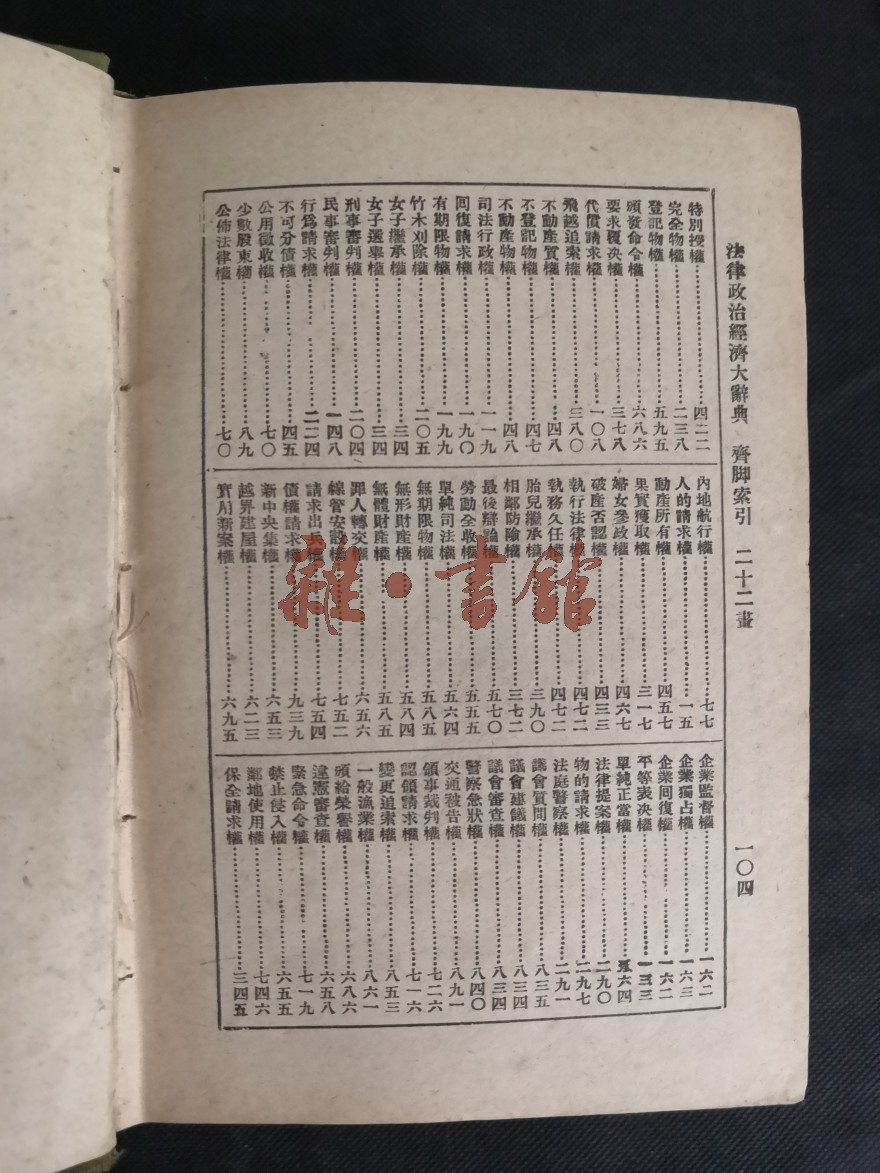 法律政治經濟大辭典　齊脚索引　二十二畫　一〇四
特別授權⋯⋯四二二
完全物權⋯⋯二三八
登記物權⋯⋯五九五
頒發命令權⋯⋯六八六
要求覆決權⋯⋯三七八
代償請求權⋯⋯一〇八
飛越追索權⋯⋯三八〇
不動產質權⋯⋯四八
不登記物權⋯⋯四七
不動產物權⋯⋯四八
司法行政權⋯⋯一一九
回復請求權⋯⋯一九〇
有期限物權⋯⋯一九九
竹木刈除權⋯⋯二〇五
女子繼承權⋯⋯三四
女子選舉權⋯⋯三四
刑事審判權⋯⋯二〇四
民事審判權⋯⋯一四八
行爲請求權⋯⋯二二四
不可分債權⋯⋯四五
公用徵收權⋯⋯七〇
少數股東權⋯⋯八九
公佈法律權⋯⋯七〇
內地航行權⋯⋯七七
人的請求權⋯⋯一五
動產所有權⋯⋯四五七
果實獲取權⋯⋯三一七
婦女參政權⋯⋯四六七
破產否認權⋯⋯四三三
執行法律權⋯⋯四七二
執務久任權⋯⋯四七二
胎兒繼承權⋯⋯三九〇
相鄰防險權⋯⋯三七二
最後辯論權⋯⋯五七〇
勞動全收權⋯⋯五五五
單純司法權⋯⋯五六四
無期限物權⋯⋯五八五
無形財產權⋯⋯五八四
無體財產權⋯⋯五八五
罪人轉交權⋯⋯六五六
線管安設權⋯⋯七五二
請求出兵權⋯⋯七五四
債權請求權⋯⋯九三九
新中央集權⋯⋯六五三
越界建屋權⋯⋯六二三
實用新案權⋯⋯六九五
企業監督權⋯⋯一六二
企業獨占權⋯⋯一六三
企業回復權⋯⋯一六二
平等表决權⋯⋯一三三
單純正當權⋯⋯六四
法律提案權⋯⋯二九〇
物的請求權⋯⋯二九七
法庭警察權⋯⋯二九一
議會質問權⋯⋯八三五
議會建議權⋯⋯八三四
議會審查權⋯⋯八三四
警察急狀權⋯⋯八四〇
交通被告權⋯⋯八九一
領事裁判權⋯⋯七二六
認領請求權⋯⋯七一六
變更追索權⋯⋯八五三
一般漁業權⋯⋯八六一
頒給榮譽權⋯⋯六八六
違憲審查權⋯⋯六五八
緊急命令權⋯⋯七一九
禁止侵入權⋯⋯六五五
鄰地使用權⋯⋯七四六
保全請求權⋯⋯三四五
雜·書館